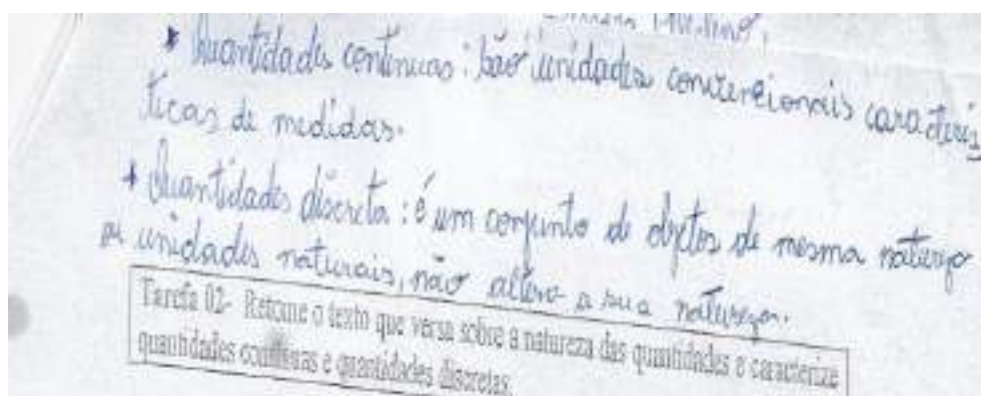 * Quantidades continuas: São unidades convencionais caracterís
ticas de medidas.
* Quantidades discreta: é um conjunto de objetos de mesma natureza
as unidades naturais, não altera a sua natureza.
Tarefa 02- Retome o texto que versa sobre a natureza das quantidades e caracterize
quantidades contínuas e quantidades discretas.